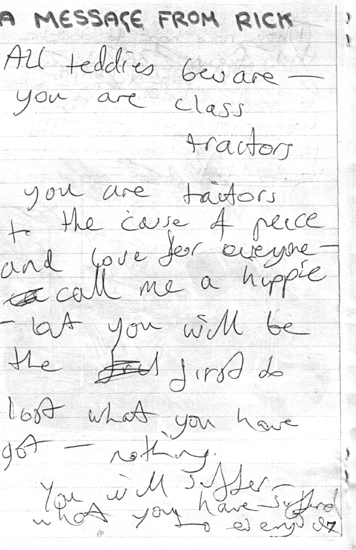 A MESSAGE FROM RICK
All teddies beware —
you are class
tractors
you are taitors
to the cause of peece
and love for everyone —
call me a hippie
— but you will be
the first to
loot what you have
got — nothing.
You will suffer —
what you have suffered
to everyone